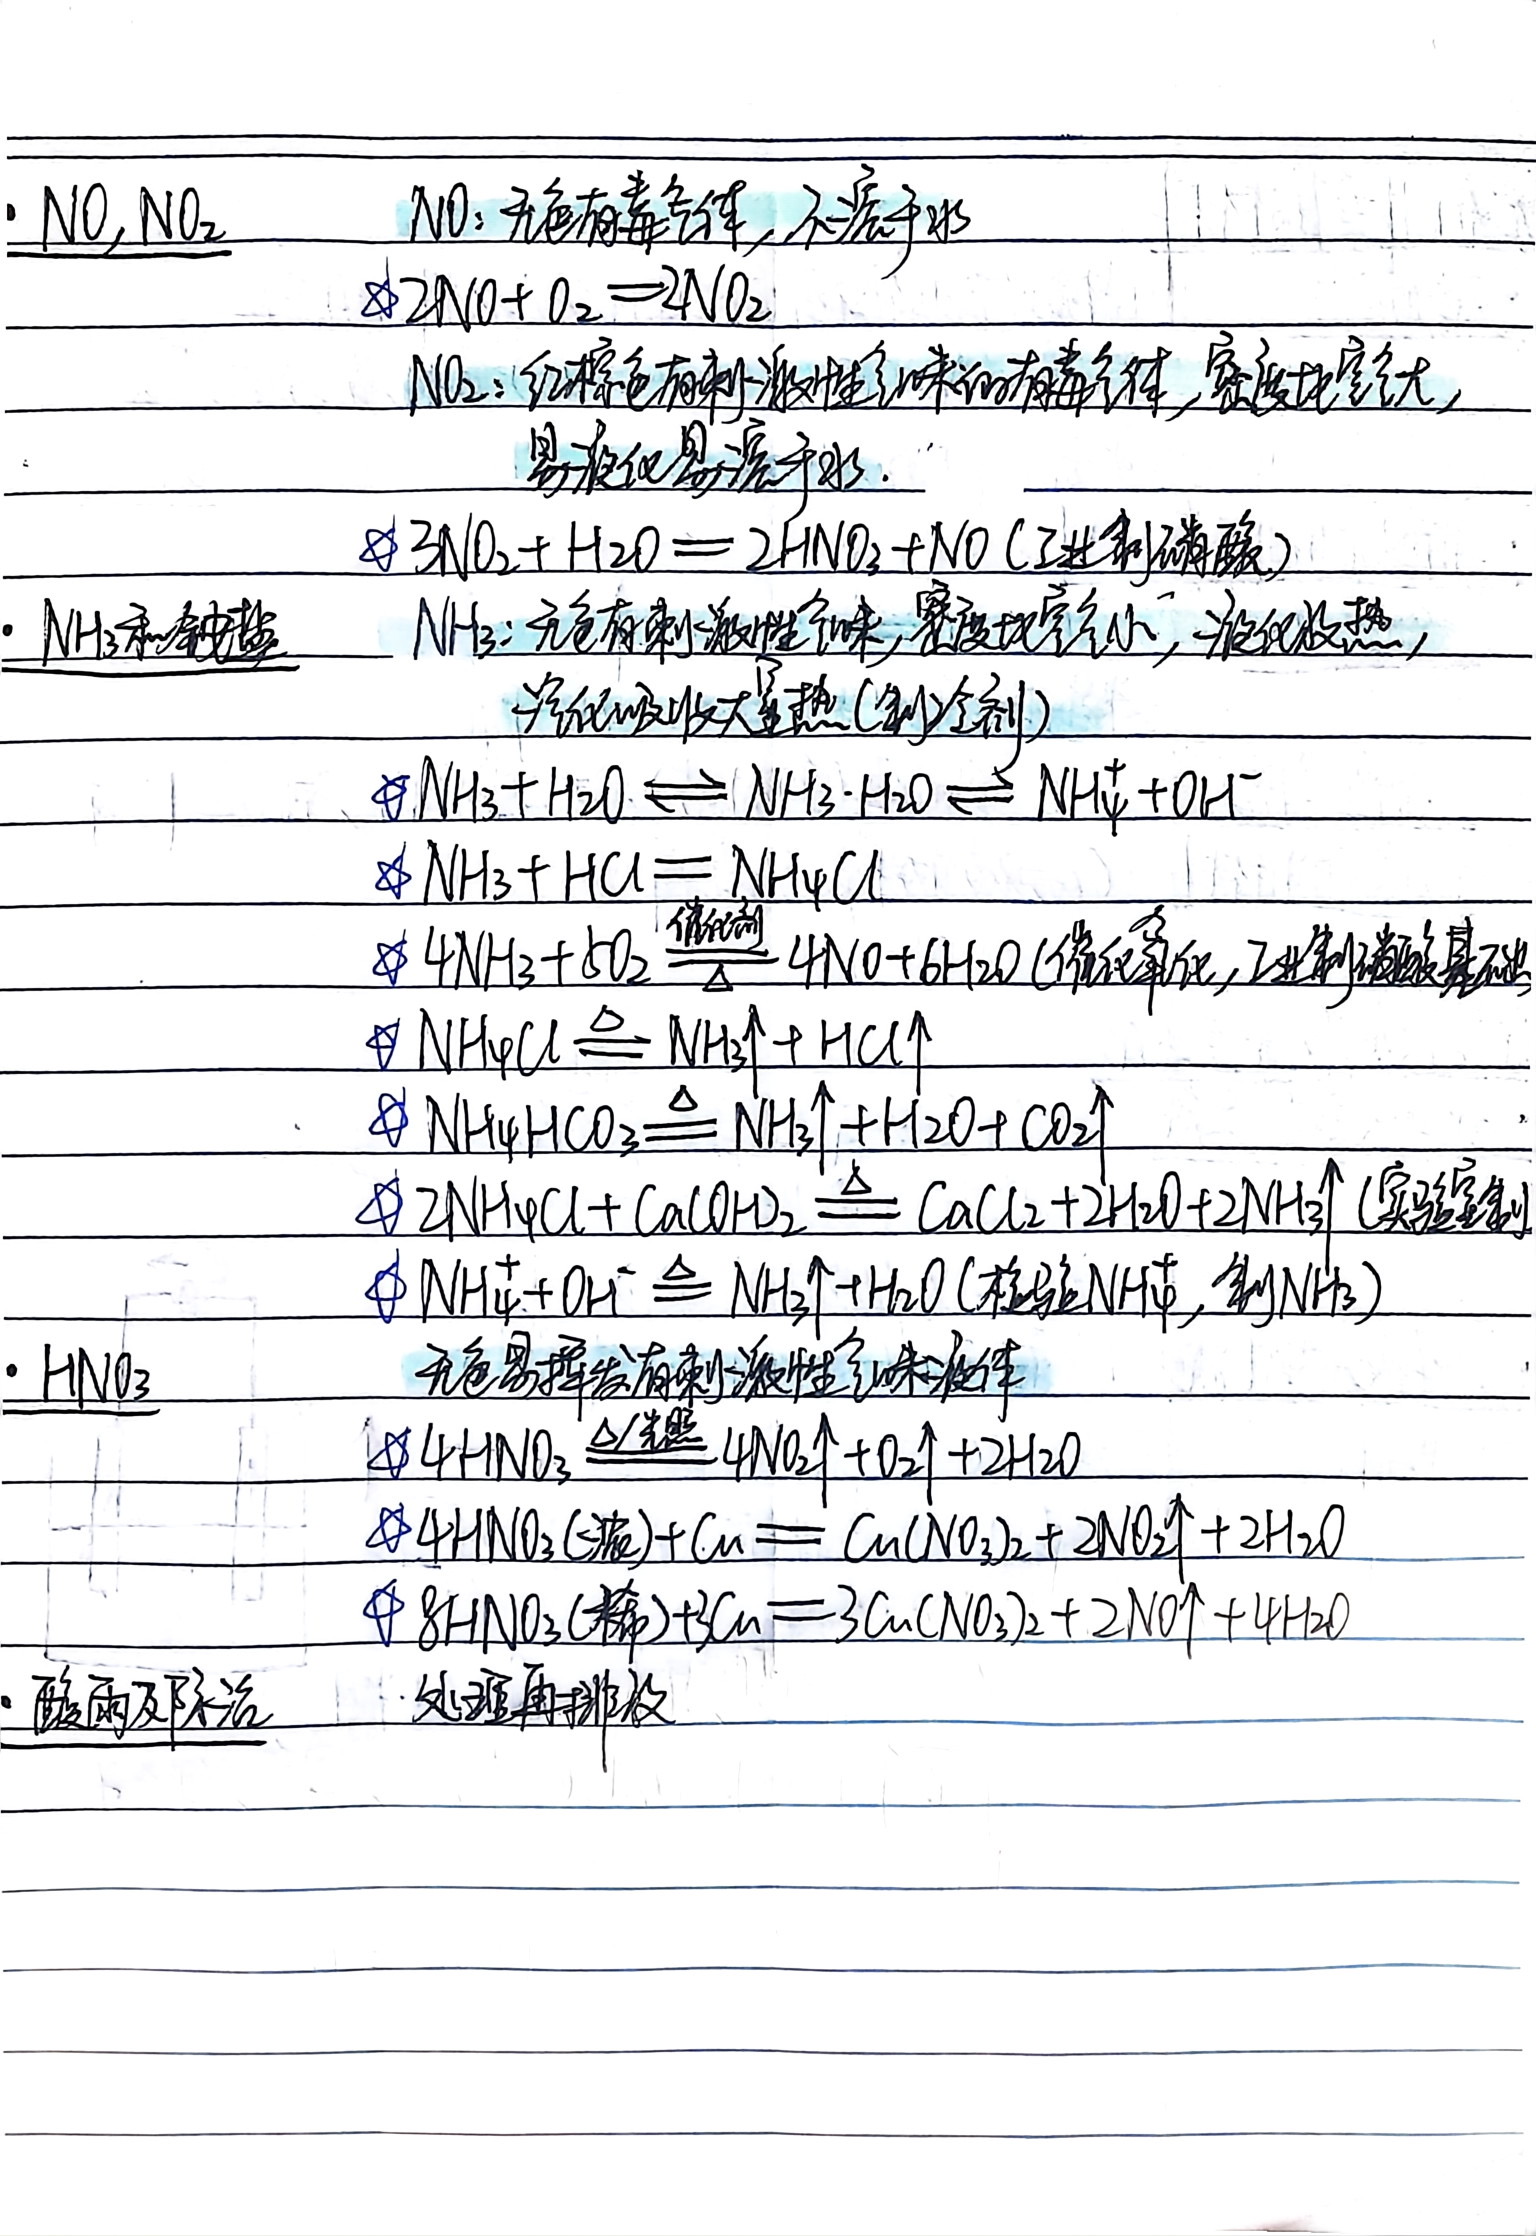 · NO, NO₂ NO: 无色有毒气体, 不溶于水
☆ 2NO + O₂ = 2NO₂
NO₂: 红棕色有刺激性气味的有毒气体, 密度比空气大,
易液化易溶于水.
☆ 3NO₂ + H₂O = 2HNO₃ + NO (工业制硝酸)
· NH₃和铵盐 NH₃: 无色有刺激性气味, 密度比空气小, 液化放热,
汽化吸收大量热(制冷剂)
☆ NH₃ + H₂O ⇌ NH₃·H₂O ⇌ NH₄⁺ + OH⁻
☆ NH₃ + HCl = NH₄Cl
☆ 4NH₃ + 5O₂ =催化剂/△= 4NO + 6H₂O (催化氧化, 工业制硝酸基础
☆ NH₄Cl =△= NH₃↑ + HCl↑
☆ NH₄HCO₃ =△= NH₃↑ + H₂O + CO₂↑
☆ 2NH₄Cl + Ca(OH)₂ =△= CaCl₂ + 2H₂O + 2NH₃↑ (实验室制
☆ NH₄⁺ + OH⁻ =△= NH₃↑ + H₂O (检验NH₄⁺, 制NH₃)
· HNO₃ 无色易挥发有刺激性气味液体
☆ 4HNO₃ =△/光照= 4NO₂↑ + O₂↑ + 2H₂O
☆ 4HNO₃(浓) + Cu = Cu(NO₃)₂ + 2NO₂↑ + 2H₂O
☆ 8HNO₃(稀) + 3Cu = 3Cu(NO₃)₂ + 2NO↑ + 4H₂O
· 酸雨及防治 处理再排放